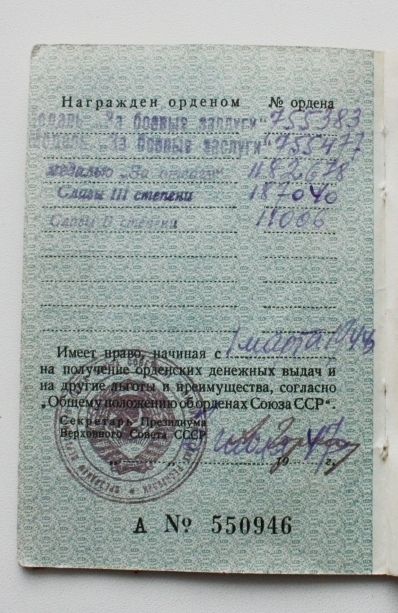 Награжден орденом № ордена
медаль „За боевые заслуги" 755383
медаль „За боевые заслуги" 755477
медалью „За отвагу" 1182678
Славы III степени 187040
Славы II степени
Имеет право, начиная с 1 марта
на получение орденских денежных выдач и
на другие льготы и преимущества, согласно
„Общему положению об орденах Союза ССР".
Секретарь Президиума
Верховного Совета СССР
19 г.
А № 550946